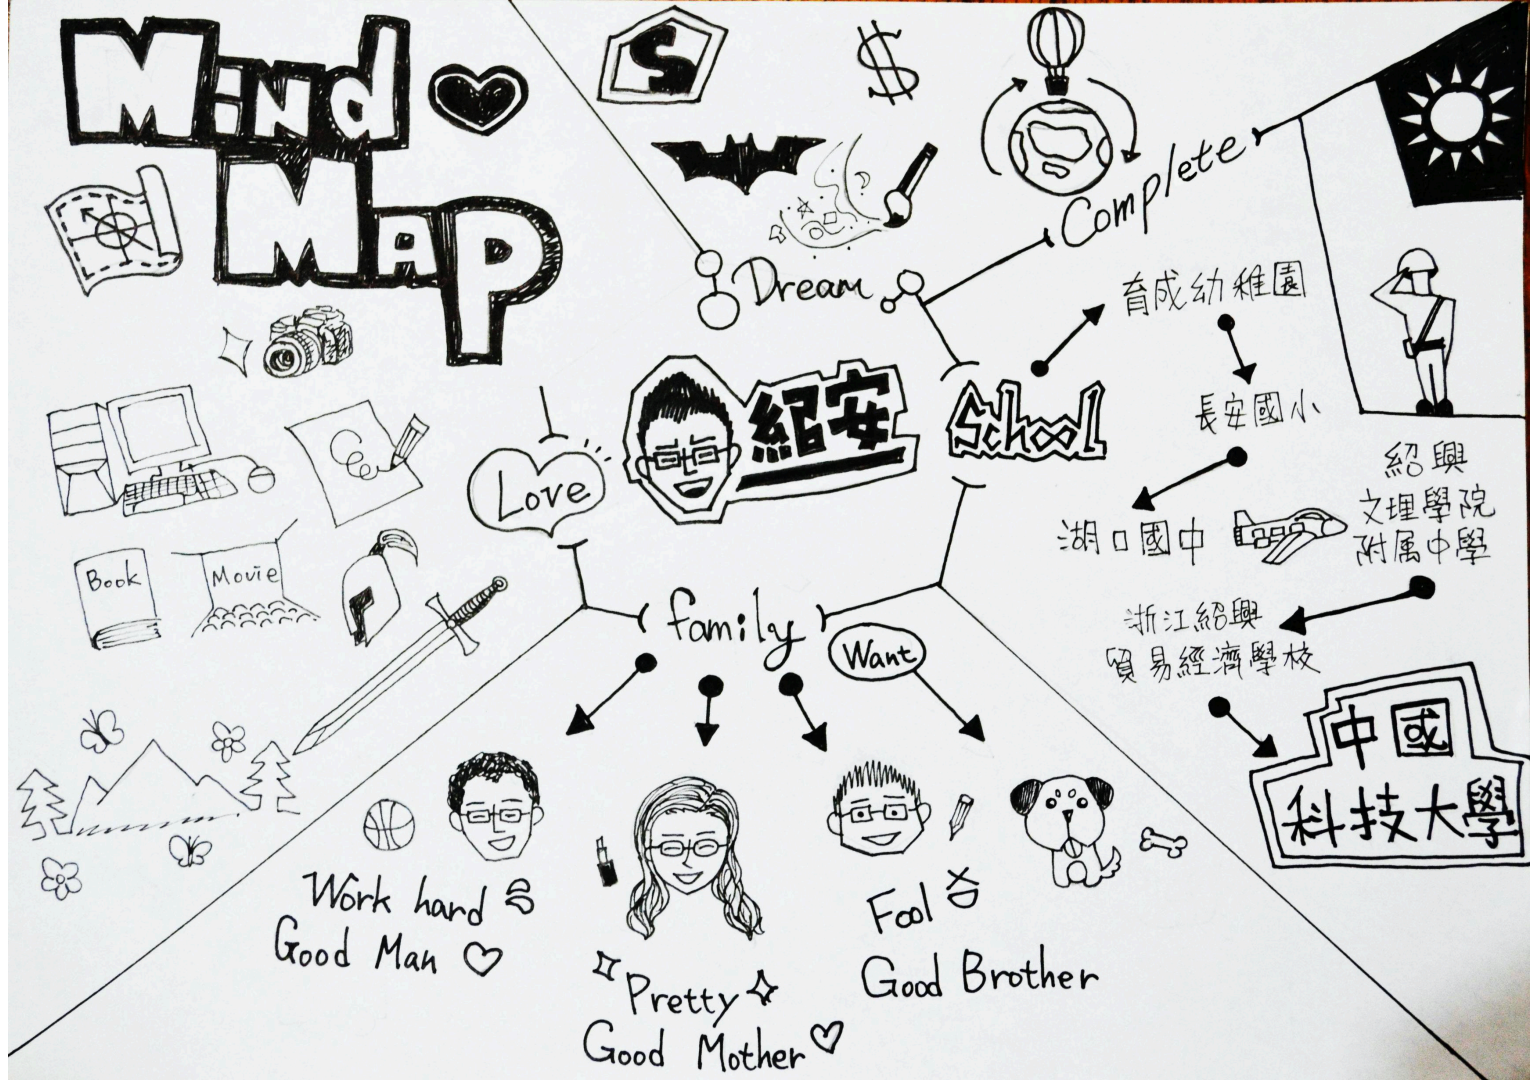 MiNd
MAP
S
$
Dream
Complete
紹安
School
育成幼稚園
長安國小
湖口國中
紹興
文理學院
附属中學
浙江紹興
貿易經濟學校
中國
科技大學
Love
Book
Movie
family
Want
Work hard
Good Man
Pretty
Good Mother
Fool
Good Brother